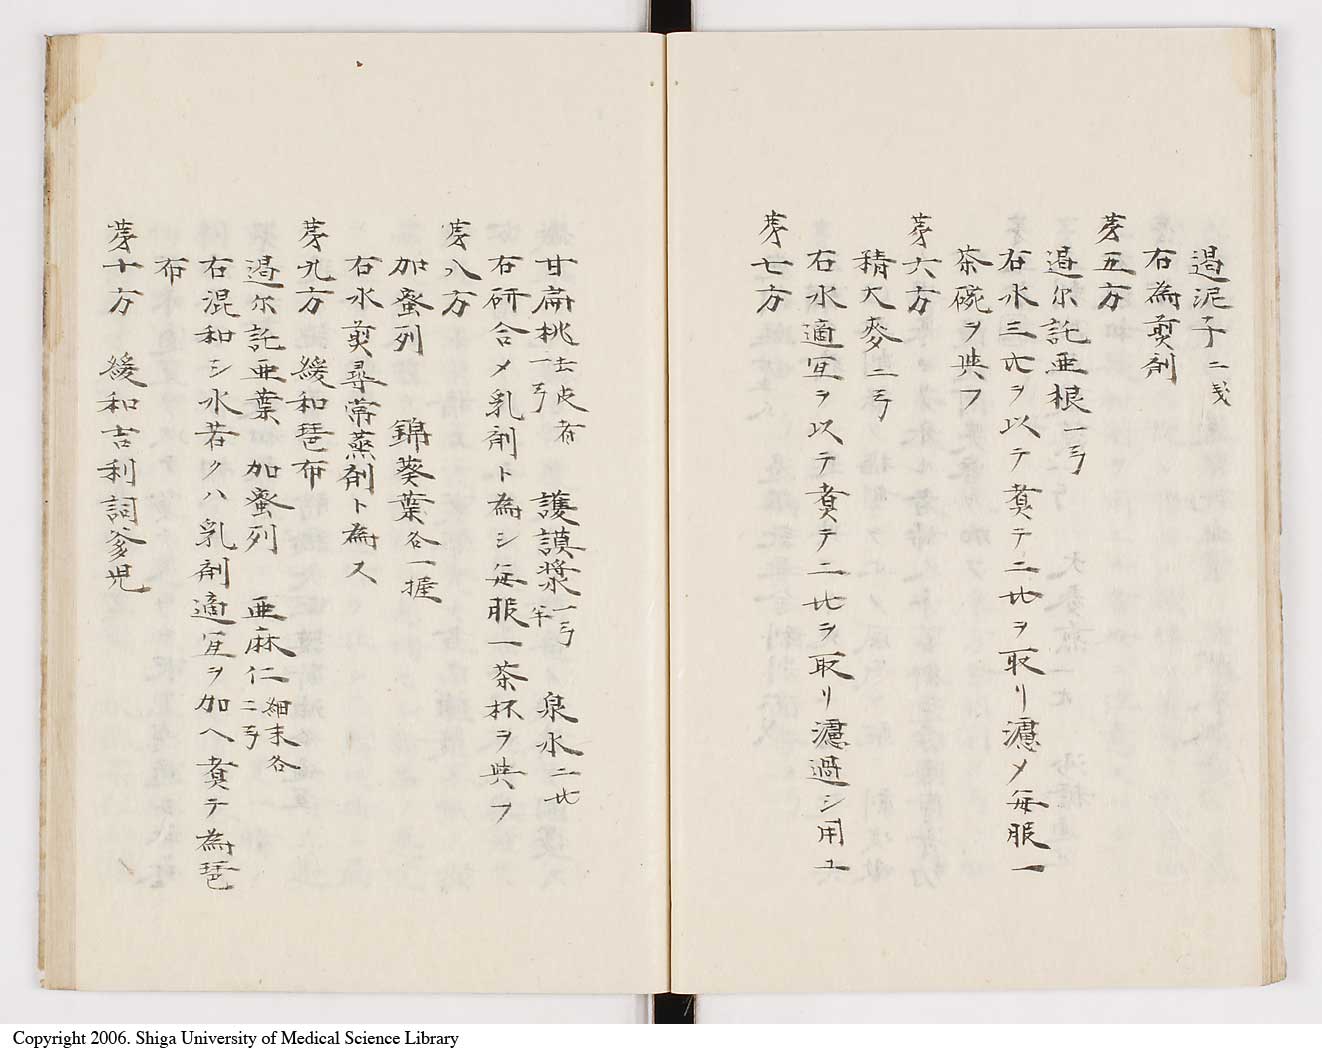 遏泥子二戔
右為煎剤
第五方
遏尓託亜根一弓
右水三㪷ヲ以テ煮テ二㪷ヲ取リ濾メ毎服一
茶碗ヲ與フ
第六方
精大麥二弓
右水適宜ヲ以テ煮テ二㪷ヲ取リ濾過シ用ユ
第七方
甘扁桃去皮者一弓 護謨漿一弓半 泉水二㪷
右研合メ乳剤ト為シ毎服一茶杯ヲ與フ
第八方
加蜜列 錦葵葉各一握
右水煎尋常蒸剤ト為ス
第九方 緩和琶布
遏尓託亜葉 加蜜列 亜麻仁細末各二弓
右混和シ水若クハ乳剤適宜ヲ加ヘ煮テ為琶
布
第十方 緩和吉利詞爹児
Copyright 2006. Shiga University of Medical Science Library